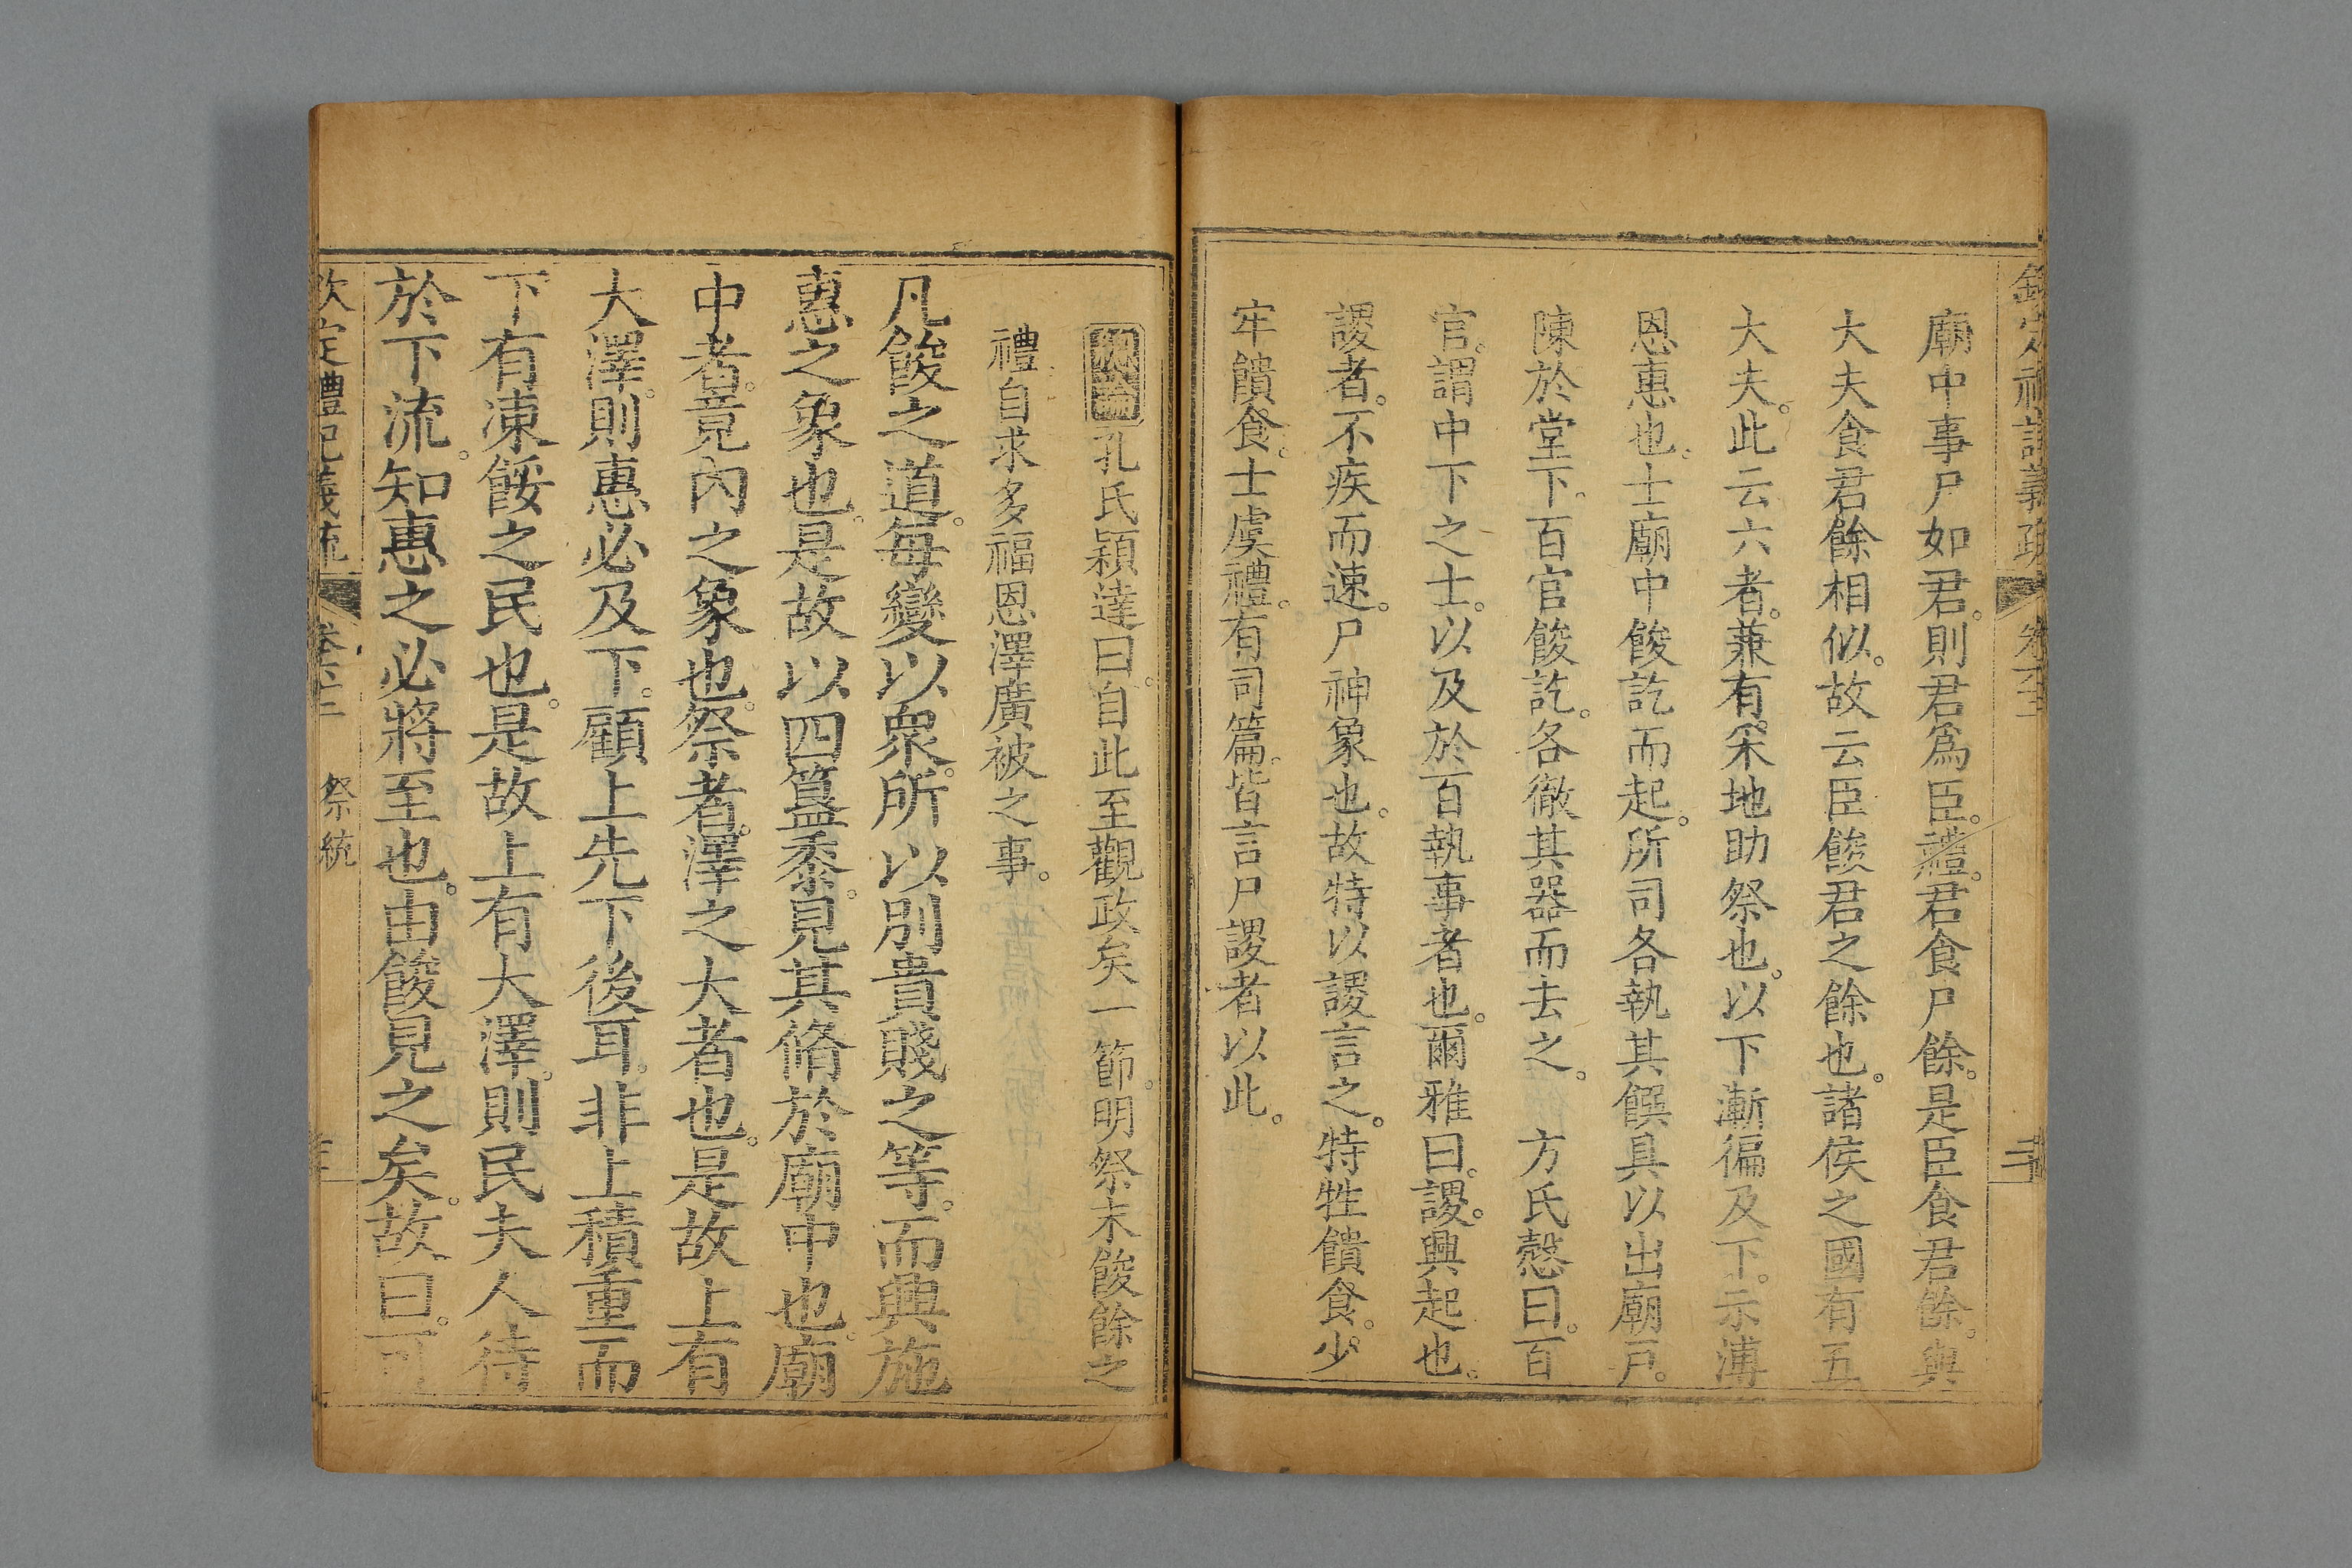 廟中事尸如君。則君爲臣。禮。君食尸餘。是臣食君餘。與
大夫食君餘相似。故云臣餕君之餘也。諸侯之國有五
大夫。此云六者。兼有采地助祭也。以下漸徧及下。示溥
恩惠也。士廟中餕訖而起。所司各執其饌具以出廟戸。
陳於堂下。百官餕訖。各徹其器而去之。 方氏慤曰。百
官。謂中下之士。以及於百執事者也。爾雅曰。謖。興起也。
謖者。不疾而速。尸神象也。故特以謖言之。特牲饋食。少
牢饋食。士虞禮。有司篇。皆言尸謖者以此。
孔氏穎達曰。自此至觀政矣一節。明祭末餕餘之
禮自求多福恩澤廣被之事。
凡餕之道。每變以衆。所以別貴賤之等。而興施
惠之象也。是故以四簋黍。見其脩於廟中也。廟
中者。竟內之象也。祭者。澤之大者也。是故上有
大澤。則惠必及下。顧上先下後耳。非上積重而
下有凍餒之民也。是故上有大澤。則民夫人待
於下流。知惠之必將至也。由餕見之矣。故曰。可
欽定禮記義疏
祭統